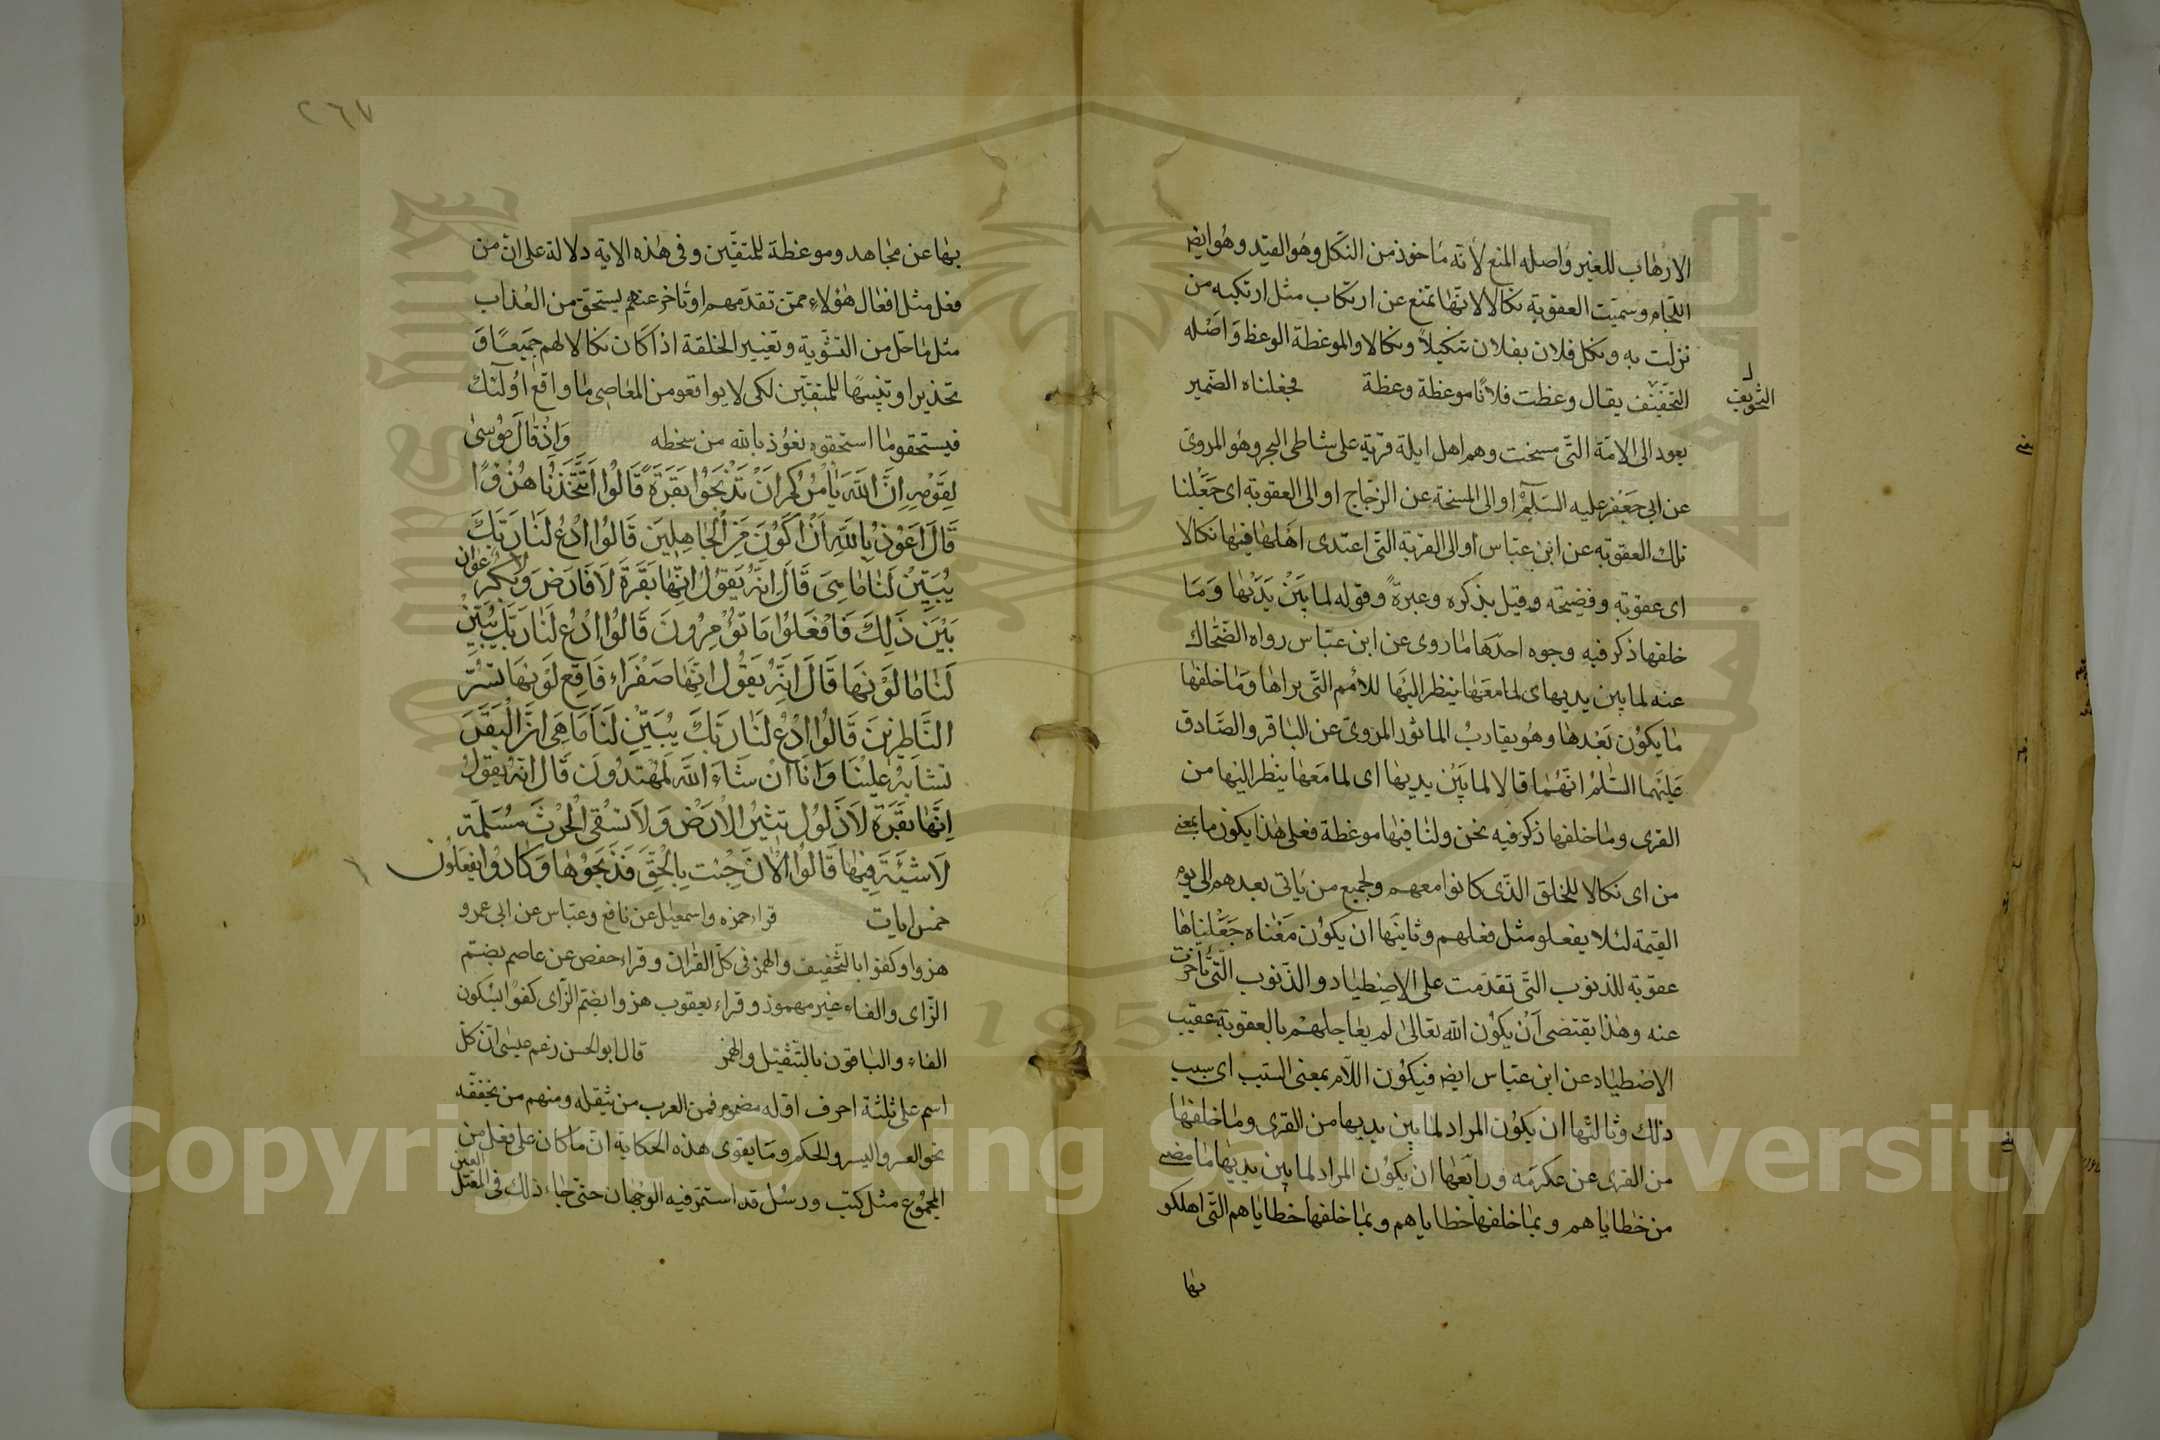 الارهاب للغير واصله المنع لانه ماخوذ من النكل وهو القيد وهو ايضا
اللجام وسميت العقوبة نكالا لانها تمنع عن ارتكاب مثل ارتكبه من
نزلت به ونكل فلان بفلان تنكيلا ونكالا والموعظة الوعظ واصله
التخفيف يقال وعظت فلانا موعظة وعظة فجعلناه الضمير
التخويف
يعود الى الامة التى مسخت وهم اهل ايلة قرية على شاطى البحر وهو المروى
عن ابى جعفر عليه السلم او الى المسخة عن الزجاج او الى العقوبة اى جعلنا
تلك العقوبة عن ابن عباس او الى القرية التى اعتدى اهلها فيها نكالا
اى عقوبة وفضيحة وقيل يذكره وعبرة وقوله لما بين يديها وما
خلفها ذكر فيه وجوه احدها ما روى عن ابن عباس رواه الضحاك
عنه لما بين يديها اى لما معها ينظر اليها للامم التى يراها وما خلفها
ما يكون بعدها وهو يقارب الماثور المروى عن الباقر والصادق
عليهما السلم انهما قالا لما بين يديها اى لما معها ينظر اليها من
القرى وما خلفها ذكر فيه نحن ولنا فيها موعظة فعلى هذا يكون ما بمعنى
من اى نكالا للخلق الذى كانوا معهم ولجميع من ياتى بعدهم الى يوم
القيمة لئلا يفعلو مثل فعلهم وثانيها ان يكون معناه جعلناها
عقوبة للذنوب التى تقدمت على الاصطياد والذنوب التى تاخرت
عنه وهذا يقتضى ان يكون الله تعالى لم يعاجلهم بالعقوبة عقيب
الاصطياد عن ابن عباس ايضا فيكون اللام بمعنى السبب اى بسبب
ذلك وثالثها ان يكون المراد لما بين يديها من القرى وما خلفها
من القرى عن عكرمه ورابعها ان يكون المراد لما بين يديها ما مضى
من خطاياهم وبما خلفها خطاياهم وبما خلفها خطاياهم التى اهلكو
بها
٢٦٧
بها عن مجاهد وموعظة للمتقين وفى هذه الاية دلالة على ان من
فعل مثل افعال هؤلاء ممن تقدمهم او تاخر عنهم يستحق من العذاب
مثل ما حل من التشوية وتغيير الخلقة اذا كان نكالا لهم جميعا و
تحذيرا وتنبيها للمتقين لكى لا يواقعو من المعاصى ما واقع اولئك
فيستحقو ما استحقوه نعوذ بالله من سخطه واذ قال موسى
لقومه ان الله يامركم ان تذبحوا بقرة قالوا اتتخذنا هزوا
قال اعوذ بالله ان اكون من الجاهلين قالوا ادع لنا ربك
يبين لنا ما هى قال انه يقول انها بقرة لا فارض ولا بكر عوان
بين ذلك فافعلوا ما تؤمرون قالوا ادع لنا ربك يبين
لنا ما لونها قال انه يقول انها صفراء فاقع لونها تسر
الناظرين قالوا ادع لنا ربك يبين لنا ما هى ان البقر
تشابه علينا وانا ان شاء الله لمهتدون قال انه يقول
انها بقرة لا ذلول تثير الارض ولا تسقى الحرث مسلمة
لا شية فيها قالوا الان جئت بالحق فذبحوها وما كادوا يفعلون
خمس ايات قراء حمزه واسمعيل عن نافع وعباس عن ابى عمرو
هزوا وكفوا بالتخفيف والهمز فى كل القران وقراء حفص عن عاصم بضم
الزاى والفاء غير مهموز وقراء يعقوب هزوا بضم الزاى كفوا بسكون
الفاء والباقون بالتثقيل والهمز قال ابو الحسن زعم عيسى ان كل
اسم على ثلثة احرف اوله مضموم فمن العرب من يثقله ومنهم من يخففه
نحو العسر واليسر والحكم ومما يقوى هذه الحكاية ان ما كان على فعل من
المجموع مثل كتب ورسل قد استمر فيه الوجهان حتى جاء ذلك فى المعتل العين